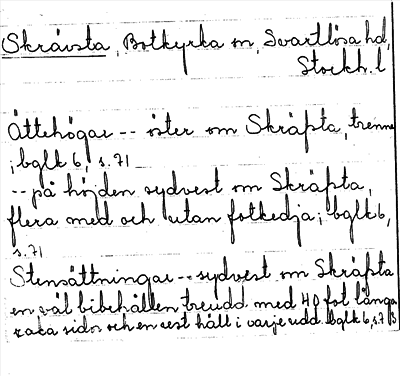 Skrävsta, Botkyrka sn, Svartlösa hd,
Stockh. l
Ättehögar -- öster om Skräfsta, trenne
; bglk 6, s. 71
-- på höjden sydvest om Skräfsta,
flera med och utan fotkedja; bglk 6,
s. 71
Stensättningar -- sydvest om Skräfsta
en väl bibehållen treudd med 40 fot långa
raka sidor och en rest häll i varje udd. bglk 6, s. 7